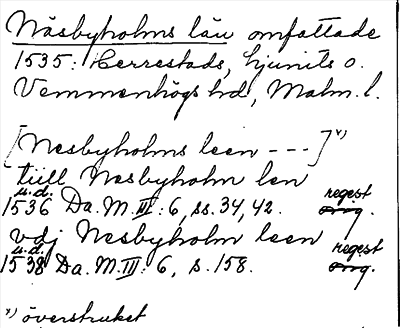 Näsbyholms län omfattade
1535: Herrestads, Ljunits o.
Vemmenhögs hd, Malm. l.
[Nesbyholms leen - - - ] x)
tiill Nesbyholm len
u.d. regest
1536 Da. M. III: 6, ss. 34, 42. orig.
vdj Nesbyholm leen
u.d. regest
1538 Da. M. III: 6, s. 158. orig.
x) överstruket